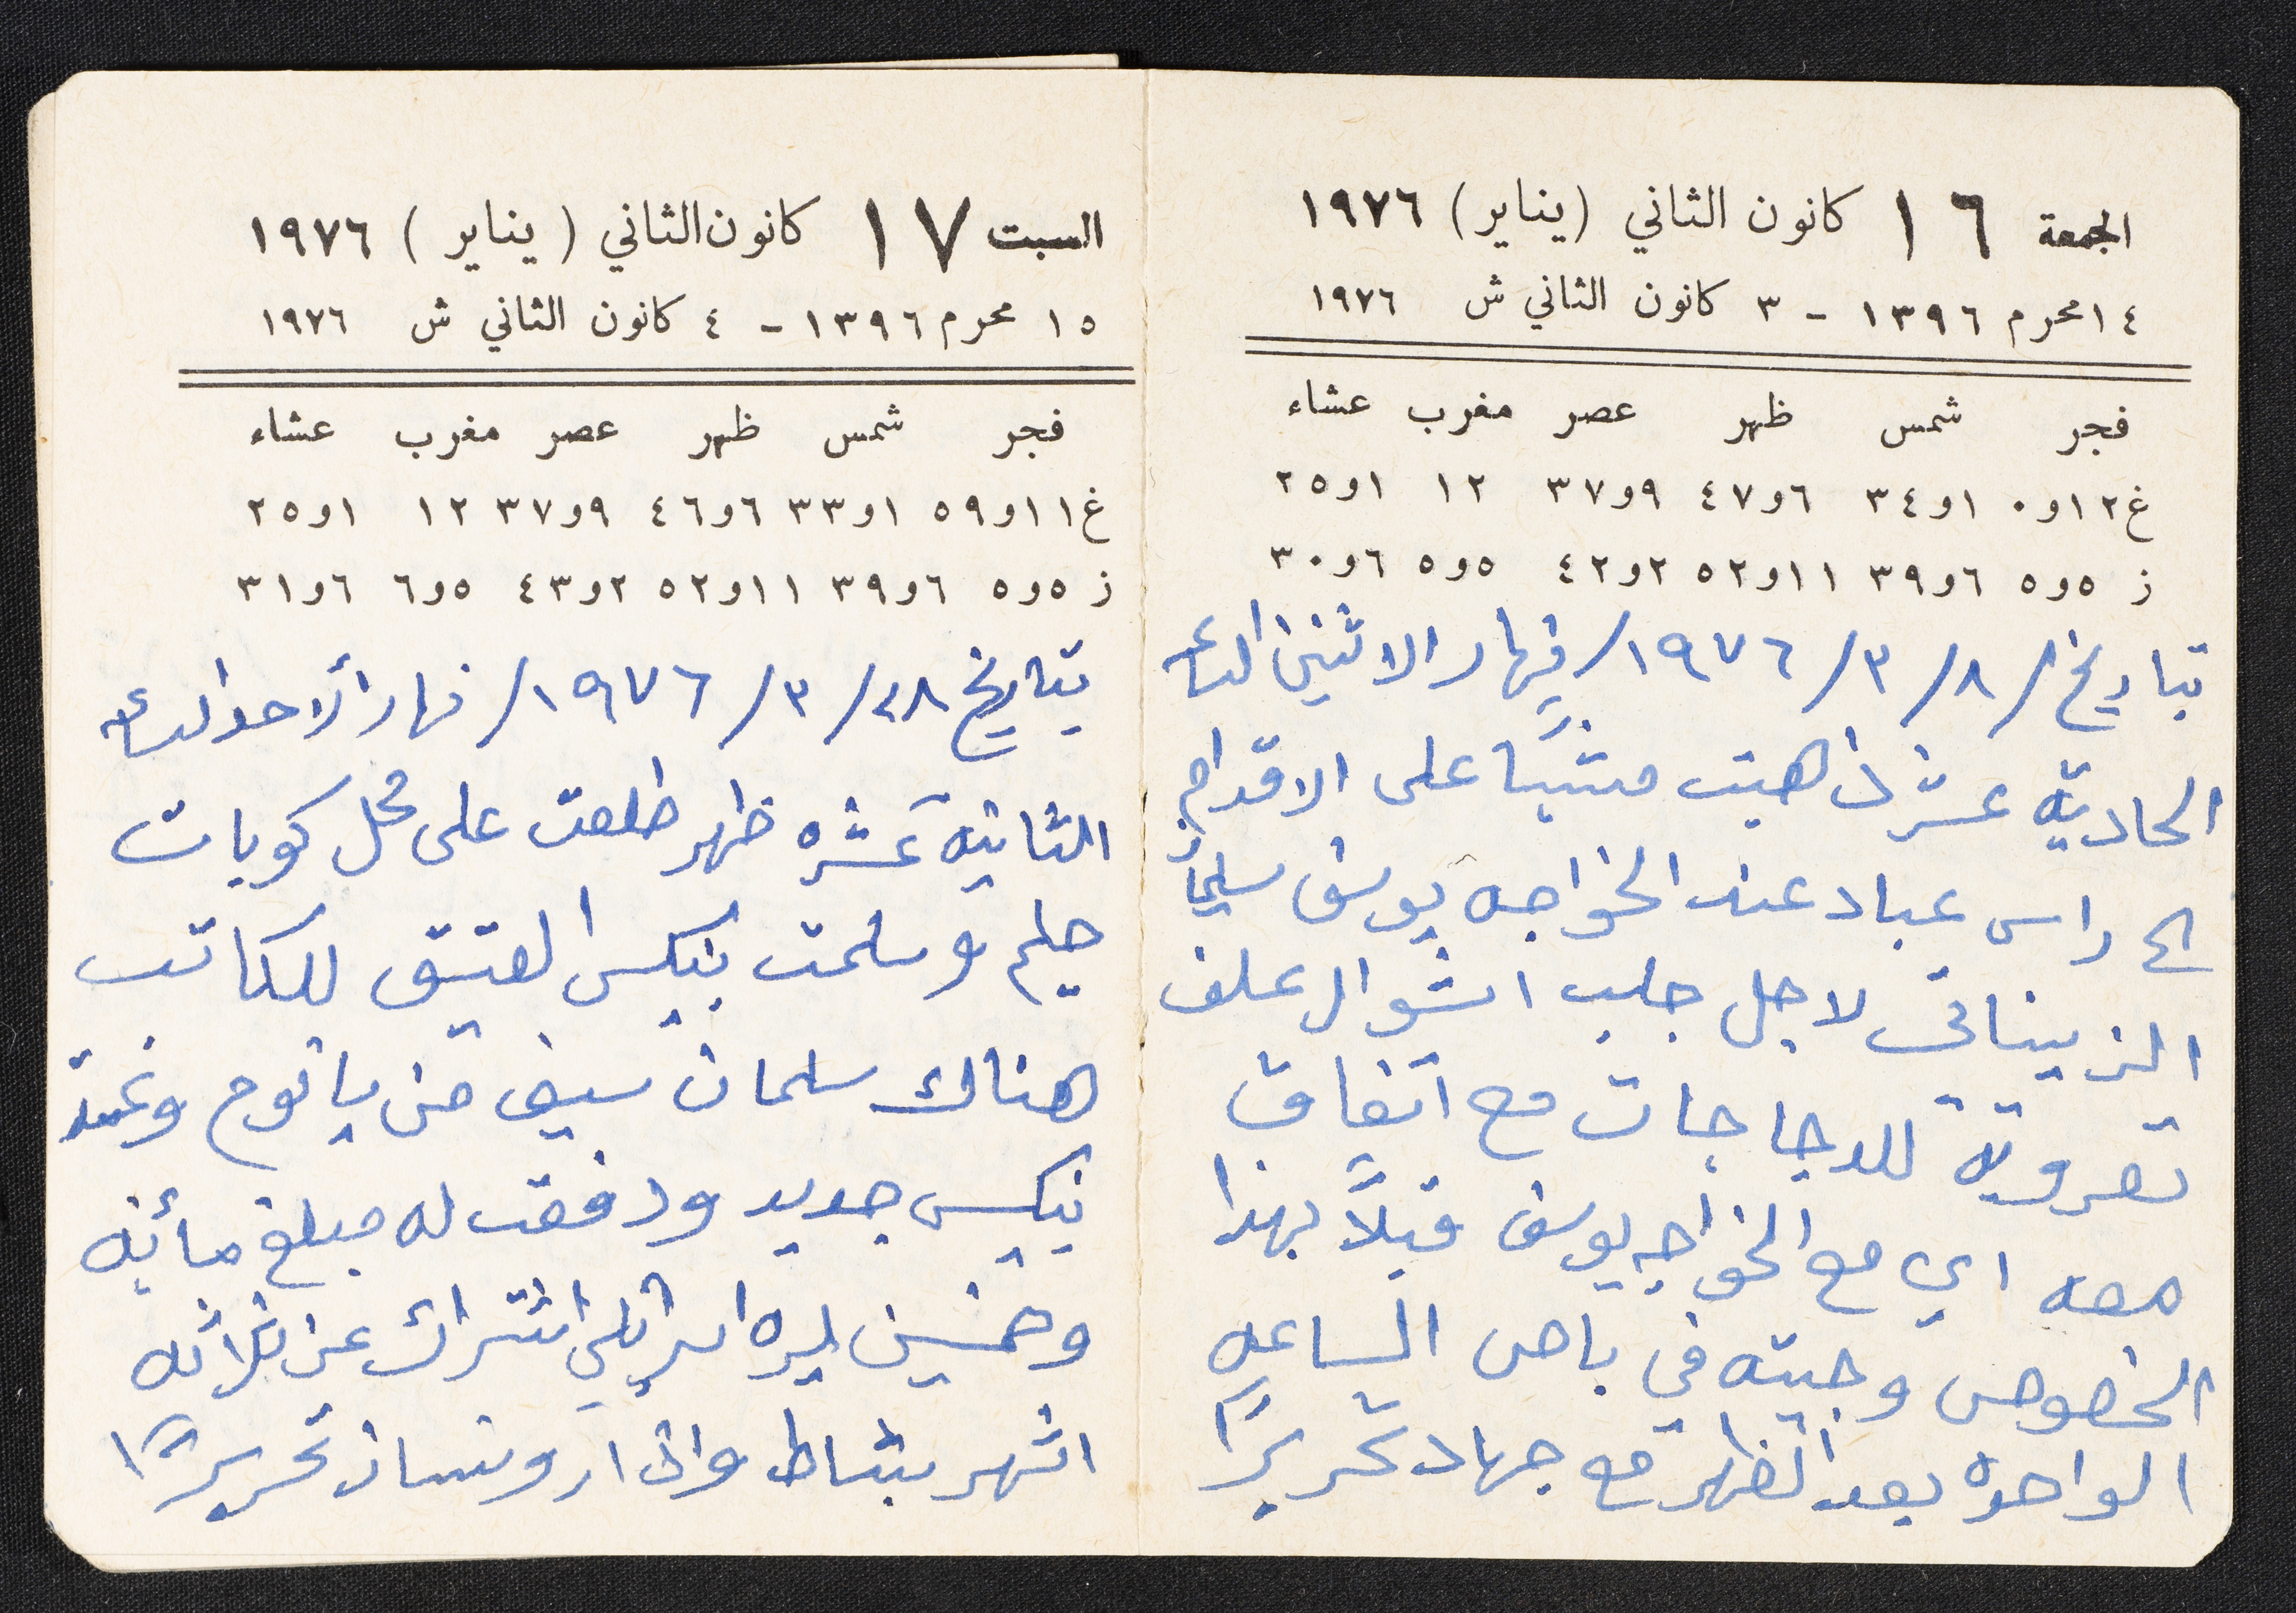 الجمعة ١٦ كانون الثاني (يناير) ١٩٧٦
١٤ محرم ١٣٩٦ - ٣ كانون الثاني ش ١٩٧٦
فجر شمس ظهر عصر مغرب عشاء
غ ١٢و٠ ١و٣٤ ٦و٤٧ ٩و٣٧ ١٢ ١و٢٥
ز ٥و٥ ٦و٣٩ ١١و٥٢ ٢و٤٢ ٥و٥ ٦و٣٠
بتاريخ /٨/ ٣/ ١٩٧٦/ نهار الاثنين الساعه
الحادية عشر ذهبت مشيًا على الاقدام
الى راس عباد عند الخواجه يوسف سليمان
الزيناتي لاجل جلب اشوال علف
تعرويه للدجاجات مع اتفاق
معه اي مع الخواجه يوسف قبلاً بهذا
الخصوص وجيته في باص الساعه
الواحده بعد الظهر مع جهاد تحريرًا
السبت ١٧ كانون الثاني (يناير) ١٩٧٦
١٥ محرم ١٣٩٦ - ٤ كانون الثاني ش ١٩٧٦
فجر شمس ظهر عصر مغرب عشاء
غ ١١و٥٩ ١و٣٣ ٦و٤٦ ٩و٣٧ ١٢ ١و٢٥
ز ٥و٥ ٦و٣٩ ١١و٥٢ ٢و٤٣ ٥و٦ ٦و٣١
بتاريخ ٢٨/ ٣/ ١٩٧٦/ نهار الاحد الساعه
الثانيه عشره ظهر طلعت على محل كوبات
حليم وسلمت بنكس العتيق للكاتب
هناك سلمان سيف من يانوح وعمد
بنكس جديد ودفعت له مبلغ مائه
وخمسين ليره اسرائيلي اشتراك عن ثلاثه
اشهر شباط واذار ونسان تحريرًا